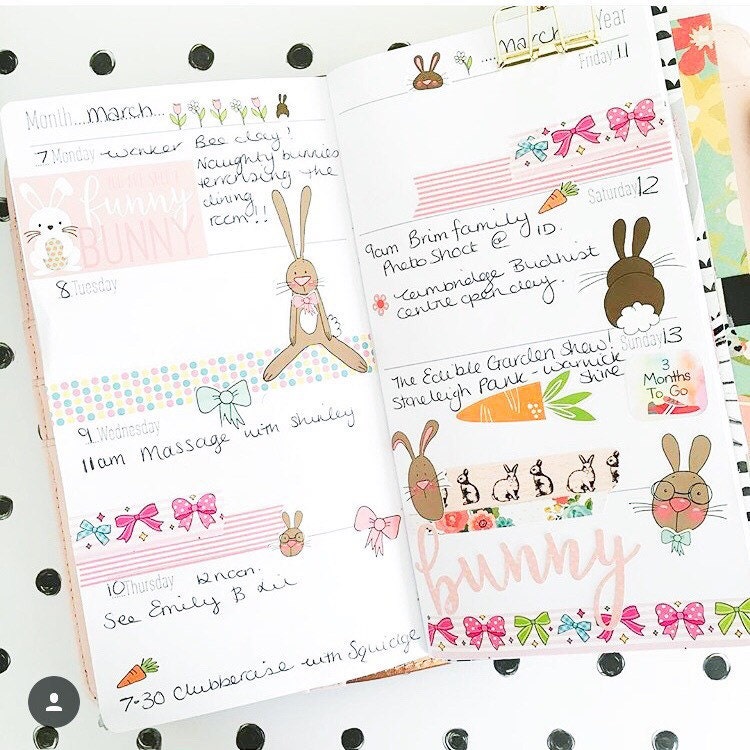 Month....March....
7 Monday - wanker
Bee clay!
Naughty bunnies
terrorising the
dining
room!!
funny
BUNNY
8 Tuesday
9 Wednesday
11am Massage with Shirley
10 Thursday 12noon.
See Emily B
7-30 Clubbercise with Squidge
....March.... Year
Friday 11
Saturday 12
9am Brim family
Photo Shoot @ 1D.
Cambridge Budhist
centre open day.
Sunday 13
The Edible Garden Show!
Stoneleigh Park - Warwick
Shire
3
Months
To Go
bunny